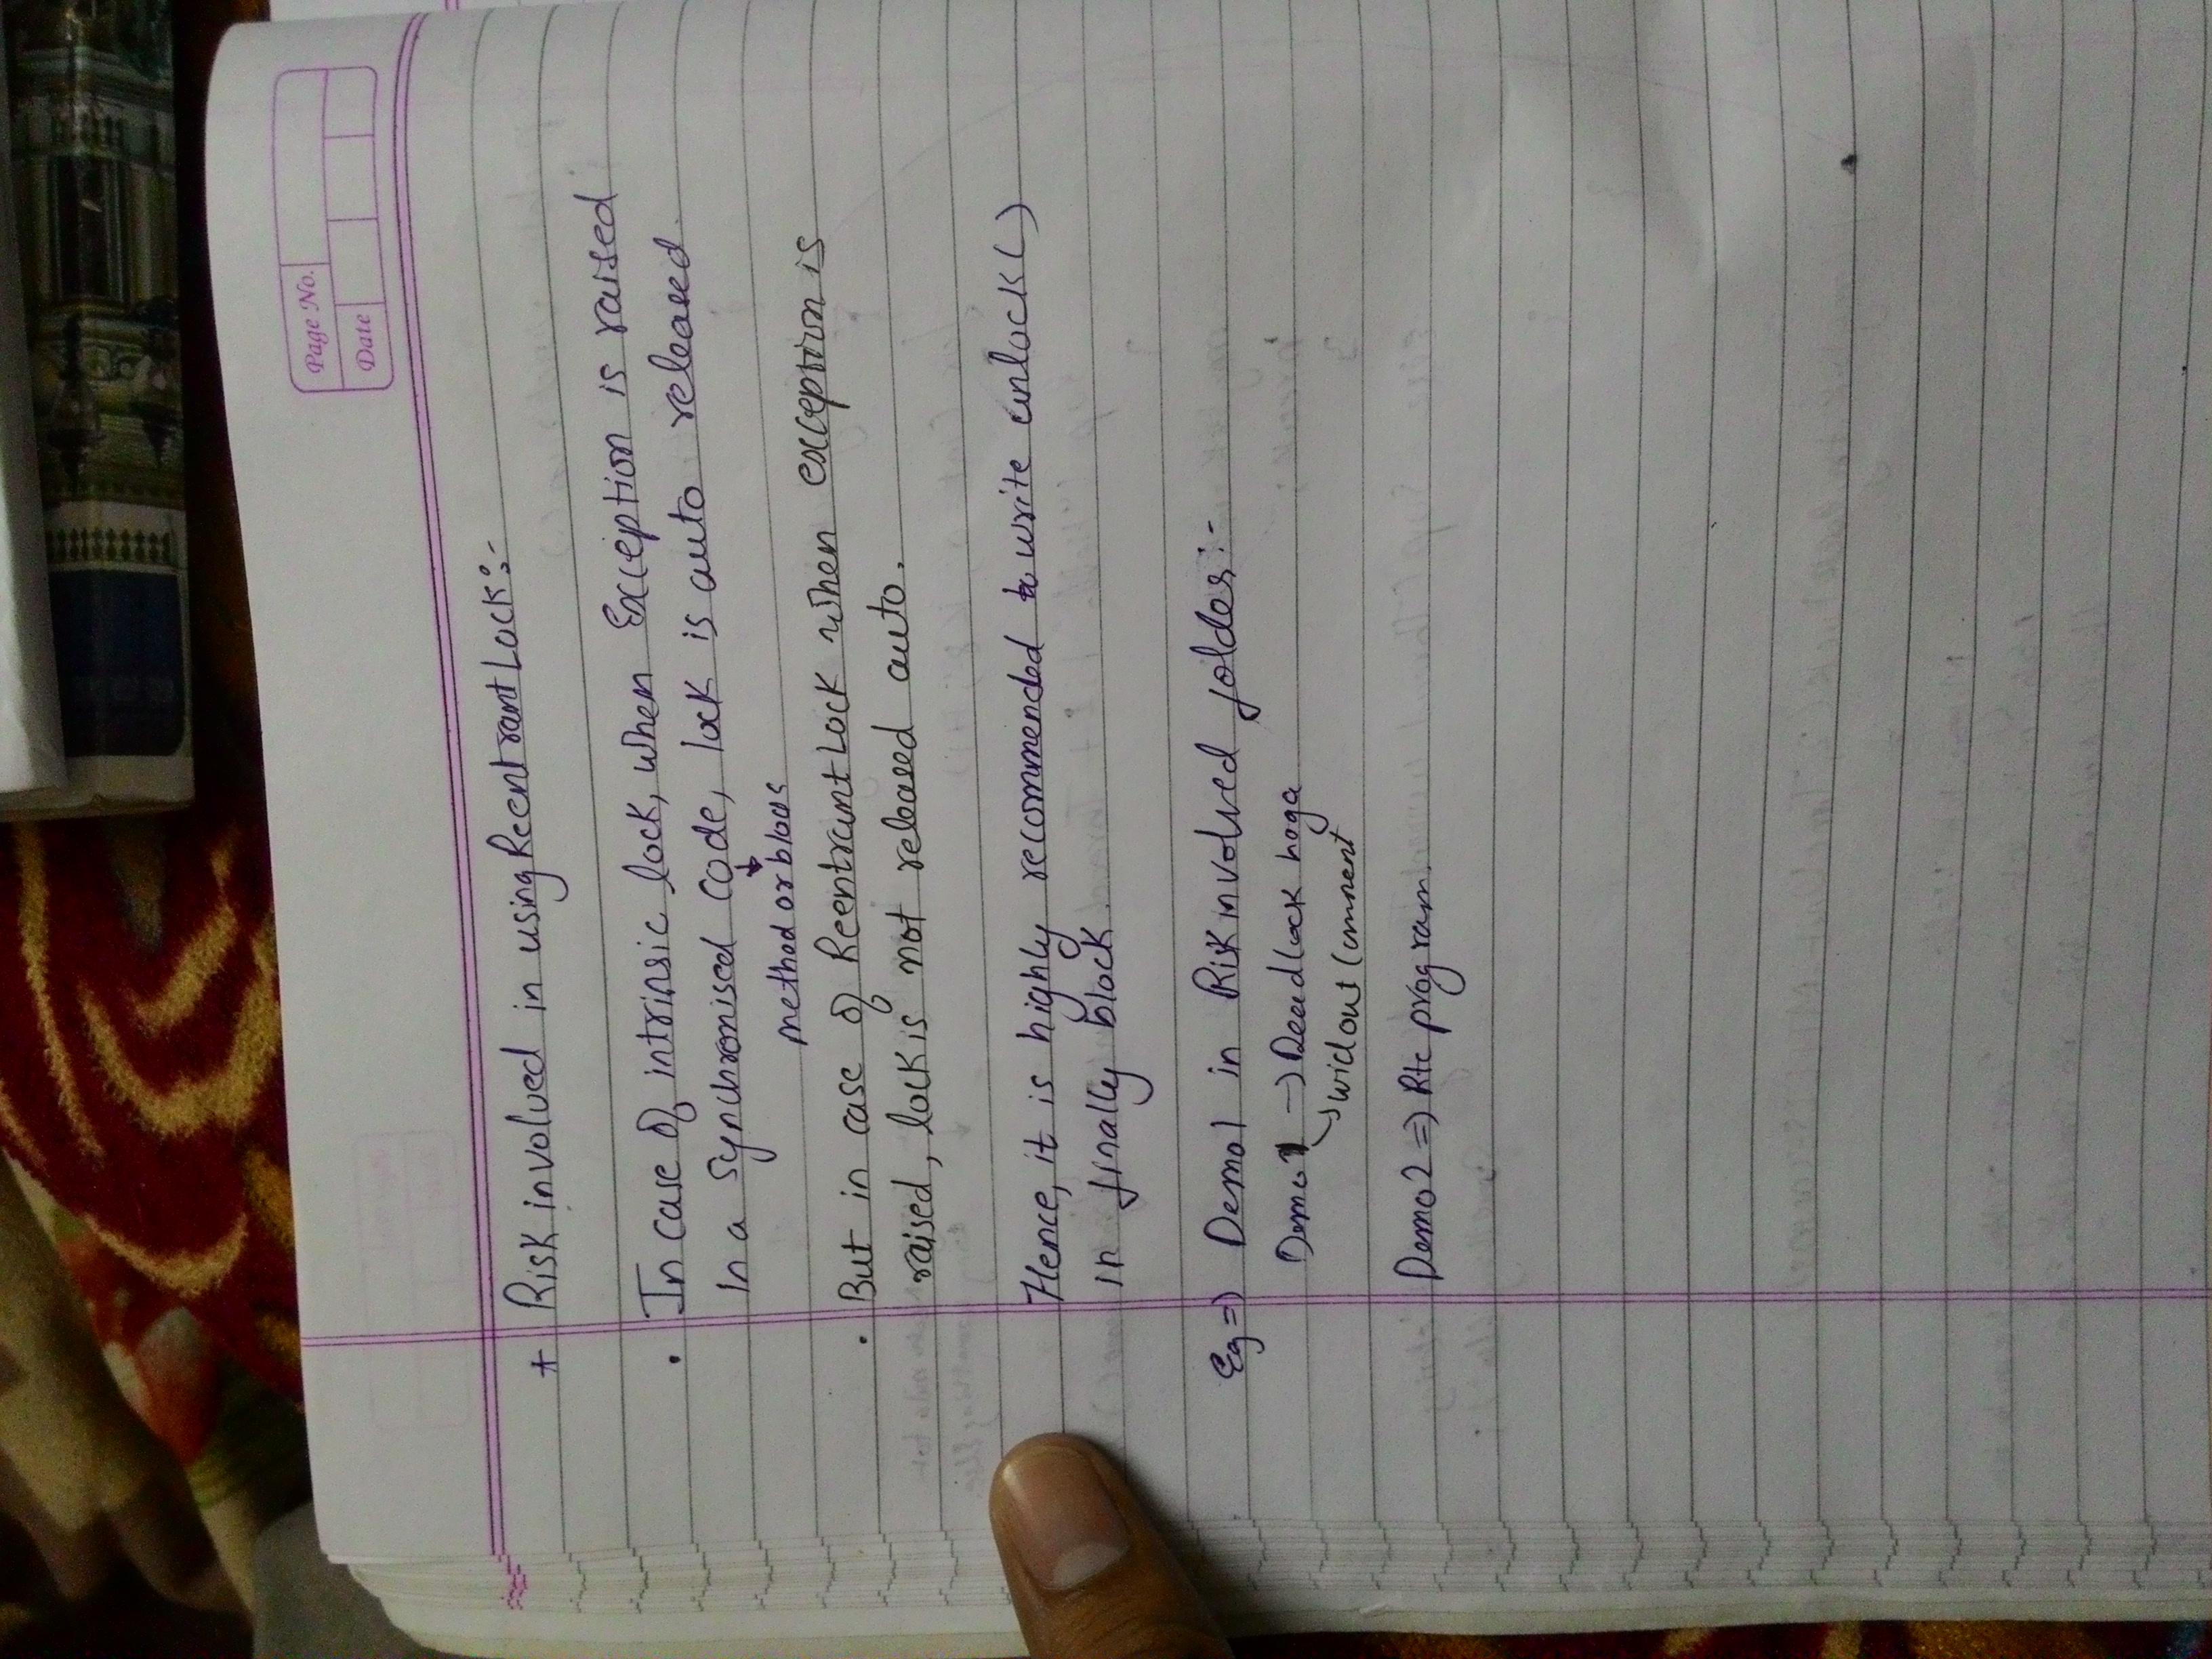 Page No.
Date
+ Risk involved in using ReentrantLock:-
. In case of intrinsic lock, when Exception is raised
in a synchronised code, lock is auto released.
↓
method or block
. But in case of ReentrantLock when exception is
raised, lock is not released auto.
Hence, it is highly recommended to write unlock()
in finally block.
Eg => Demo1 in Riskinvolved folder:-
Demo1 -> Deadlock hoga
widout comment
Demo2 => Rtc program.